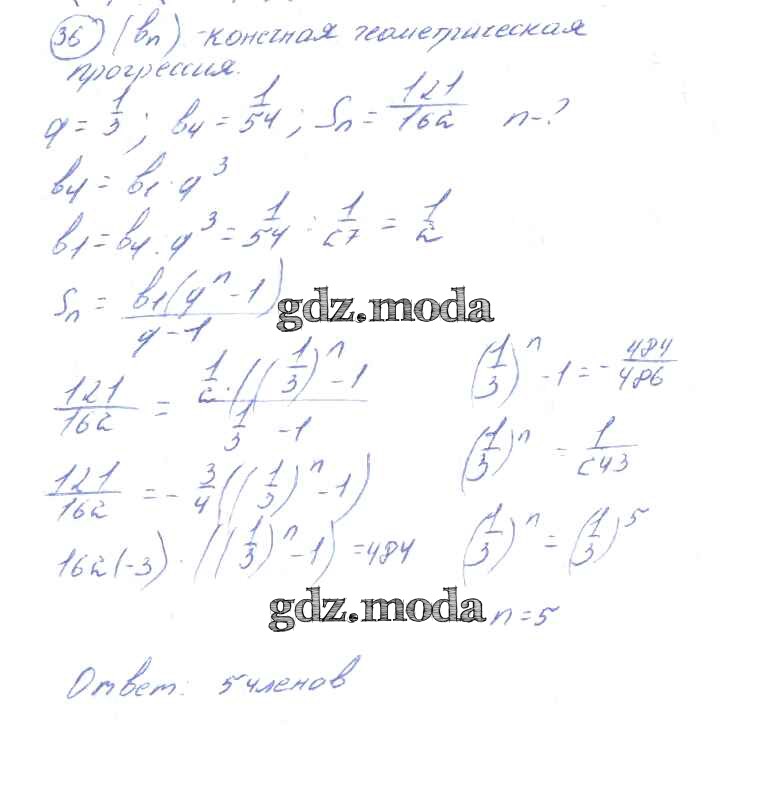 36 (bn) - конечная геометрическая
прогрессия.
q = 1/3; b4 = 1/54; Sn = 121/162 n-?
b4 = b1 · q^3
b1 = b4 : q^3 = 1/54 : 1/27 = 1/2
Sn = b1(q^n - 1)/(q - 1)
gdz.moda
121/162 = 1/2 · ((1/3)^n - 1 / 1/3 - 1
121/162 = - 3/4 ((1/3)^n - 1)
162(-3) · ((1/3)^n - 1) = 484
(1/3)^n - 1 = - 484/486
(1/3)^n = 1/243
(1/3)^n = (1/3)^5
gdz.moda
n = 5
Ответ: 5 членов